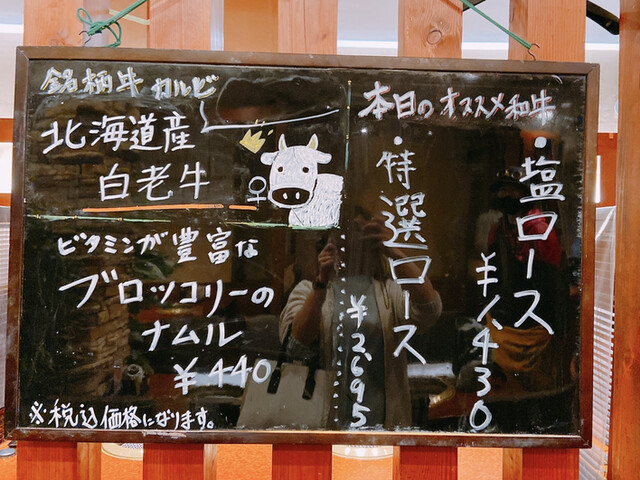 銘柄牛カルビ
北海道産
白老牛
♀
ビタミンが豊富な
ブロッコリーの
ナムル
¥440
※税込価格になります。
本日のオススメ和牛
・塩ロース
¥1,430
・特選ロース
¥2,695